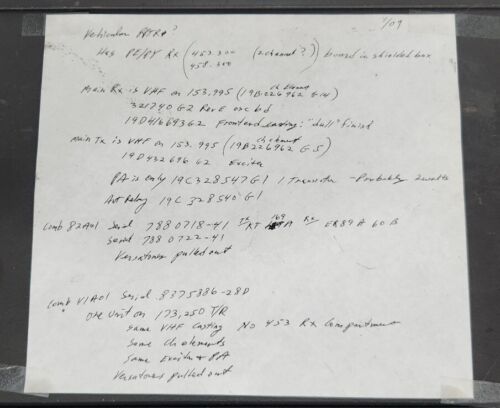 1/09
Vehicular
Has PE/PY Rx (453.300 (2 channel?)) boxed in shielded box
458.300
ch Elements
Main Rx is VHF on 153.995 (19B226962 G14)
321740 G2 Rev E osc bd
19D416693G2 Frontend casting: "dull" finish
ch element
Main Tx is VHF on 153.995 (19B226962 G5)
19D432696 G2 Exciter
PA is only 19C328547G1 1 Transistor - Probably 2watts
Ant Relay 19C 328540 G1
Comb 82A01 Serial 7880718-41 Tx KT 169 A Rx ER89 A 60 B
Serial 7880722-41
Versatones pulled out
Comb V1A01 Serial 8375386-28D
One Unit on 173,250 T/R
Same VHF Casting No 453 Rx Compartment
Same ch elements
Same Exciter & PA
Versatones pulled out